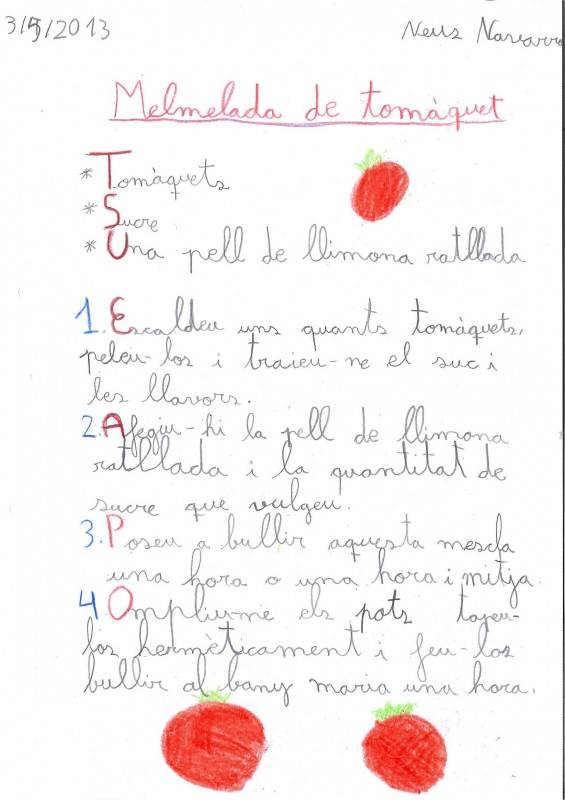 3/5/2013 Neus Navarro
Melmelada de tomàquet
* Tomàquets
* Sucre
* Una pell de llimona ratllada
1. Escaldeu uns quants tomàquets,
peleu-los i traieu-ne el suc i
les llavors.
2. Afegiu-hi la pell de llimona
ratllada i la quantitat de
sucre que vulgeu.
3. Poseu a bullir aquesta mescla
una hora o una hora i mitja.
4 Ompliume els pots tapeu-
los hermèticament i feu-los
bullir al bany maria una hora.